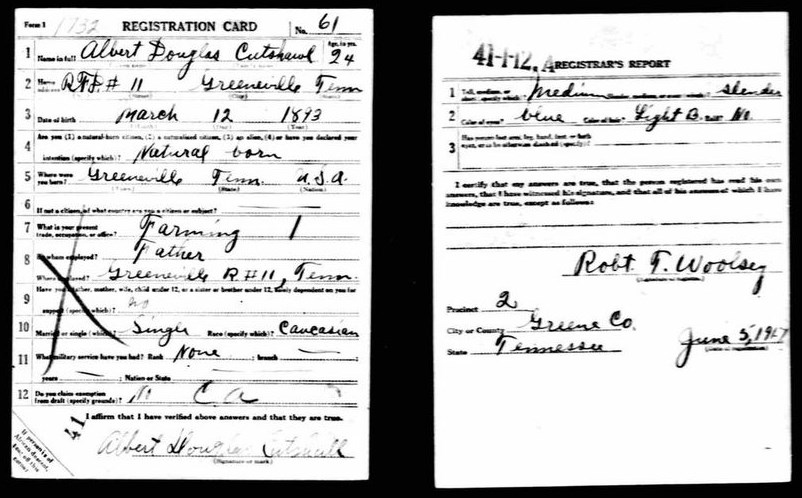 Form 1 1732 REGISTRATION CARD No. 61
1 Name in full Albert Douglas Cutshawl Age, in yrs. 24
2 Home address R.F.D. # 11 Greeneville Tenn
3 Date of birth March 12 1893
Are you (1) a natural-born citizen, (2) a naturalized citizen, (3) an alien, (4) or have you declared your
4 intention (specify which)? Natural born
5 Where were you born? Greeneville Tenn. U.S.A.
(Town) (State) (Nation)
6 If not a citizen, of what country are you a citizen or subject?
7 What is your present trade, occupation, or office? Farming 1
8 By whom employed? Father
Where employed? Greeneville R #11, Tenn.
9 Have you a father, mother, wife, child under 12, or a sister or brother under 12, solely dependent on you for
support (specify which)? No
10 Married or single (which)? Single Race (specify which)? Caucasian
11 What military service have you had? Rank None ; branch
years ; Nation or State
12 Do you claim exemption from draft (specify grounds)? No C A
I affirm that I have verified above answers and that they are true.
41
Albert Douglas Cutshall
(Signature or mark)
If person is of African descent, tear off this corner
41-1-12. A REGISTRAR'S REPORT
1 Tall, medium, or short (specify which)? Medium Slender, medium, or stout (which)? Slender
2 Color of eyes? blue Color of hair? Light B. Bald? No.
3 Has person lost arm, leg, hand, foot, or both
eyes, or is he otherwise disabled (specify)?
I certify that my answers are true, that the person registered has read his own
answers, that I have witnessed his signature, and that all of his answers of which I have
knowledge are true, except as follows:
Robt. T. Woolsey
(Signature of registrar)
Precinct 2
City or County Greene Co.
State Tennessee June 5, 1917
(Date of registration)